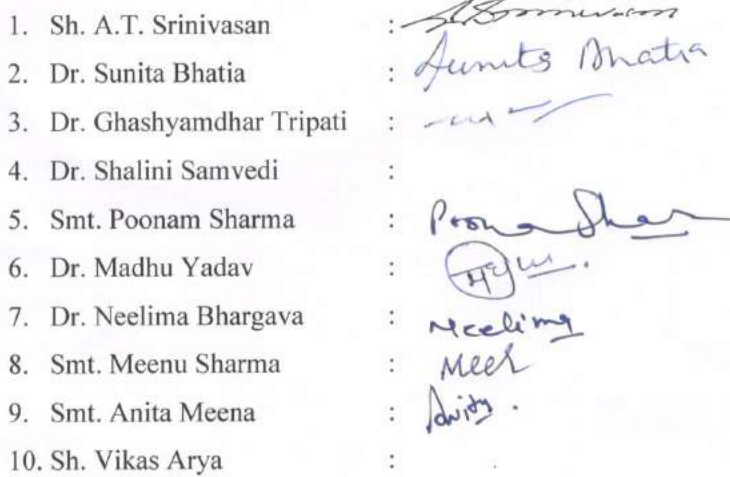 1. Sh. A.T. Srinivasan : A.T. Srinivasan
2. Dr. Sunita Bhatia : Sunita Bhatia
3. Dr. Ghashyamdhar Tripati :
4. Dr. Shalini Samvedi :
5. Smt. Poonam Sharma : Poona Shar
6. Dr. Madhu Yadav :
7. Dr. Neelima Bhargava : Neelima
8. Smt. Meenu Sharma : Meen
9. Smt. Anita Meena : Anita.
10. Sh. Vikas Arya :